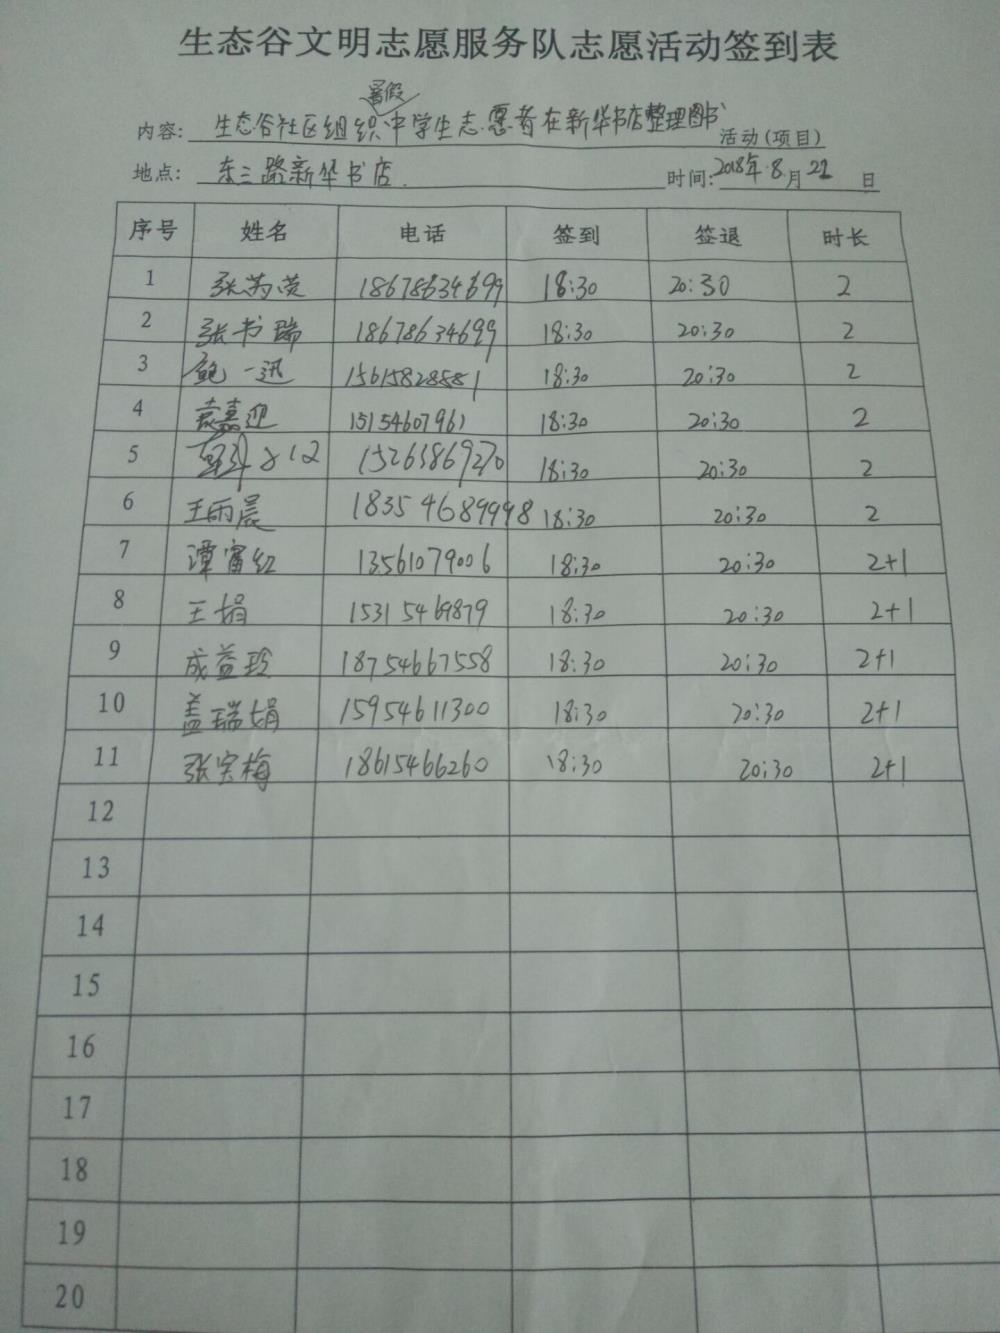 生态谷文明志愿服务队志愿活动签到表
暑假
内容: 生态谷社区组织中学生志愿者在新华书店整理图书 活动(项目)
地点: 东三路新华书店 时间: 2018年 8 月 21 日
序号 姓名 电话 签到 签退 时长
1 张 18678634699 18:30 20:30 2
2 张书瑞 18678634699 18:30 20:30 2
3 鲍一迅 15615828551 18:30 20:30 2
4 袁嘉迎 15154607961 18:30 20:30 2
5 15263869270 18:30 20:30 2
6 王雨晨 18354689998 18:30 20:30 2
7 谭富红 13561079006 18:30 20:30 2+1
8 王娟 15315469879 18:30 20:30 2+1
9 成益玲 18754667558 18:30 20:30 2+1
10 盖瑞娟 15954611300 18:30 20:30 2+1
11 张宝梅 18615466260 18:30 20:30 2+1
12
13
14
15
16
17
18
19
20